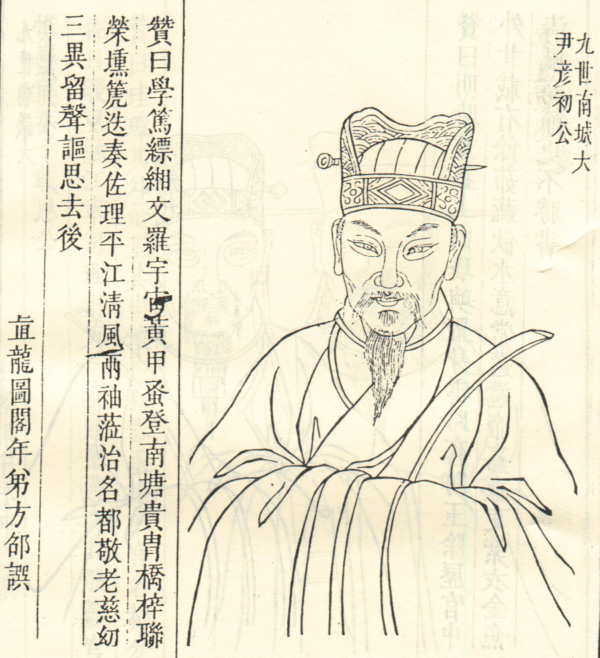 九世南城大
尹彥初公
贊曰學篤縹緗文羅宇宙黄甲蚤登南塘貴胄橋梓聯
榮壎篪迭奏佐理平江清風兩袖蒞治名都敬老慈幼
三異留聲謳思去後
直龍圖閣年弟方邠譔